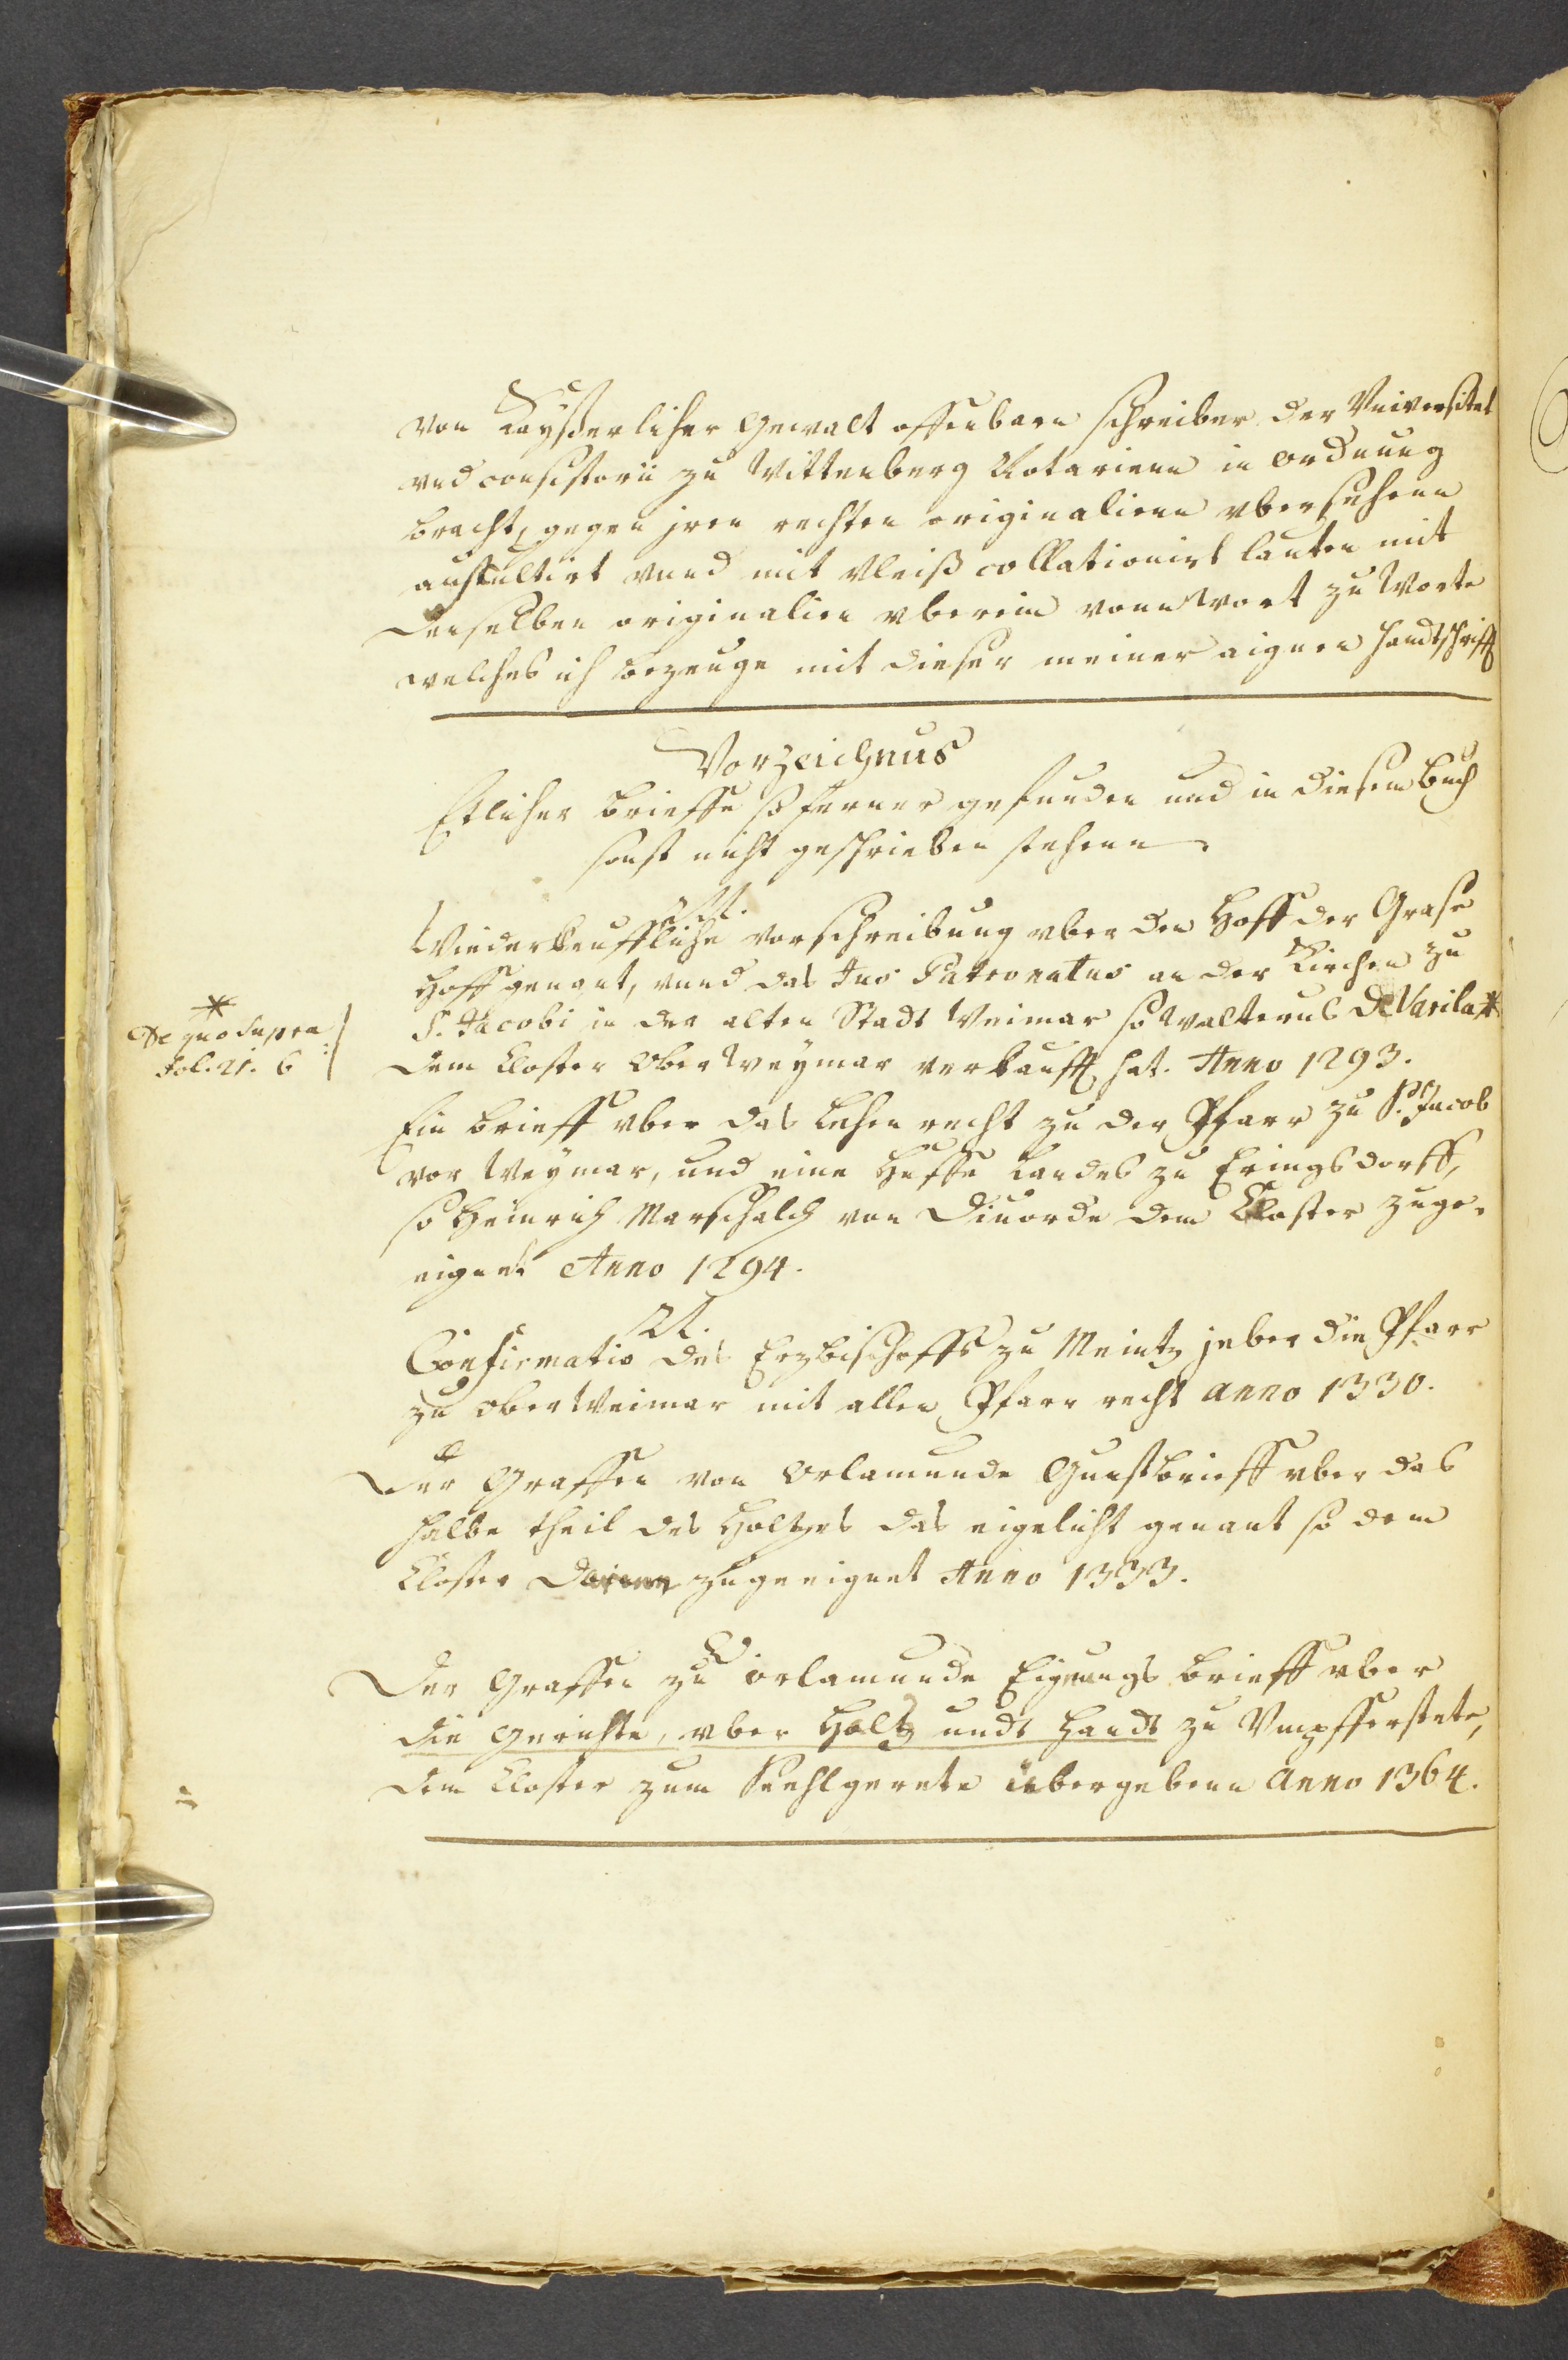 von Kayserlicher gewalt offenbarn schreiber der Universitet
vnd consistorii zu Wittenberg Notarienn in ordnung
bracht, gegen jren rechten originalienn vbersehenn
auscultirt vnnd mit vleiß collationirt lauten mit
denselben originalien vberein vonn Wort zu Worte
welches ich bezeuge mit dieser meiner aignen handtschrifft
Vorzeichnus
Etlicher brieffe so ferner gefunden und in diesem buch
sonst nicht geschrieben stehenn.
Wiederkeuffliche vorschreibung vber den Hoff der Grase
Hoff genant, vnnd das Jus Patronatus an der Kirchen zu
S. Jacobi in der alten Stadt Weimar so Walterus de Varila *
dem Closter Ober Weymar verkaufft hat. Anno 1293.
* De quo supra
fol. 21. b
Ein brieff vber das lehen recht zu der Pfarr zu S. Jacob
vor Weymar, und eine Huffe Landes zu Eringsdorff,
so Heinrich Marschalch von Diuorde dem Closter zuge-
eignet Anno 1294.
Confirmatio des Erzbischoffs zu Meintz jeber die Pfarr
zu ober Weimar mit allen Pfarr recht anno 1330.
Der Graffen von Orlamunde Gunstbrieff vber das
halbe theil des Holtzes das eigelicht genant so dem
Closter zugeeignet Anno 1333.
Der Graffen zu orlamunde Eignungs brieff vber
die gerichte, vber Haltz undt Handt zu Vmpfferstete,
dem Closter zum Seehlgerete übergebenn Anno 1364.